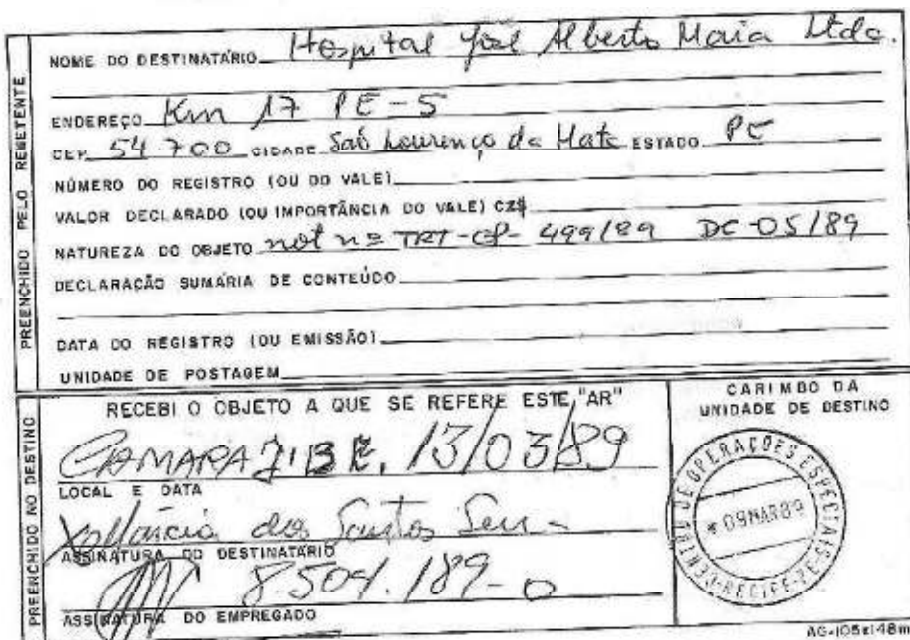 PREENCHIDO PELO REMETENTE
NOME DO DESTINATÁRIO Hospital José Alberto Maia Ltda.
ENDEREÇO Km 17 PE-5
CEP 54 700 CIDADE São Lourenço da Mata ESTADO PE
NÚMERO DO REGISTRO (OU DO VALE)
VALOR DECLARADO (OU IMPORTÂNCIA DO VALE) CZ$
NATUREZA DO OBJETO not nº TRT-GP- 499/89 DC-05/89
DECLARAÇÃO SUMÁRIA DE CONTEÚDO
DATA DO REGISTRO (OU EMISSÃO)
UNIDADE DE POSTAGEM
PREENCHIDO NO DESTINO
RECEBI O OBJETO A QUE SE REFERE ESTE "AR"
CAMARAJIBE, 13/03/89
LOCAL E DATA
Márcia dos Santos
ASSINATURA DO DESTINATÁRIO
8.509.189-0
ASSINATURA DO EMPREGADO
CARIMBO DA
UNIDADE DE DESTINO
CENTRO DE OPERAÇÕES ESPECIAIS
09MAR89
RECIFE-PE
AG-105x148m